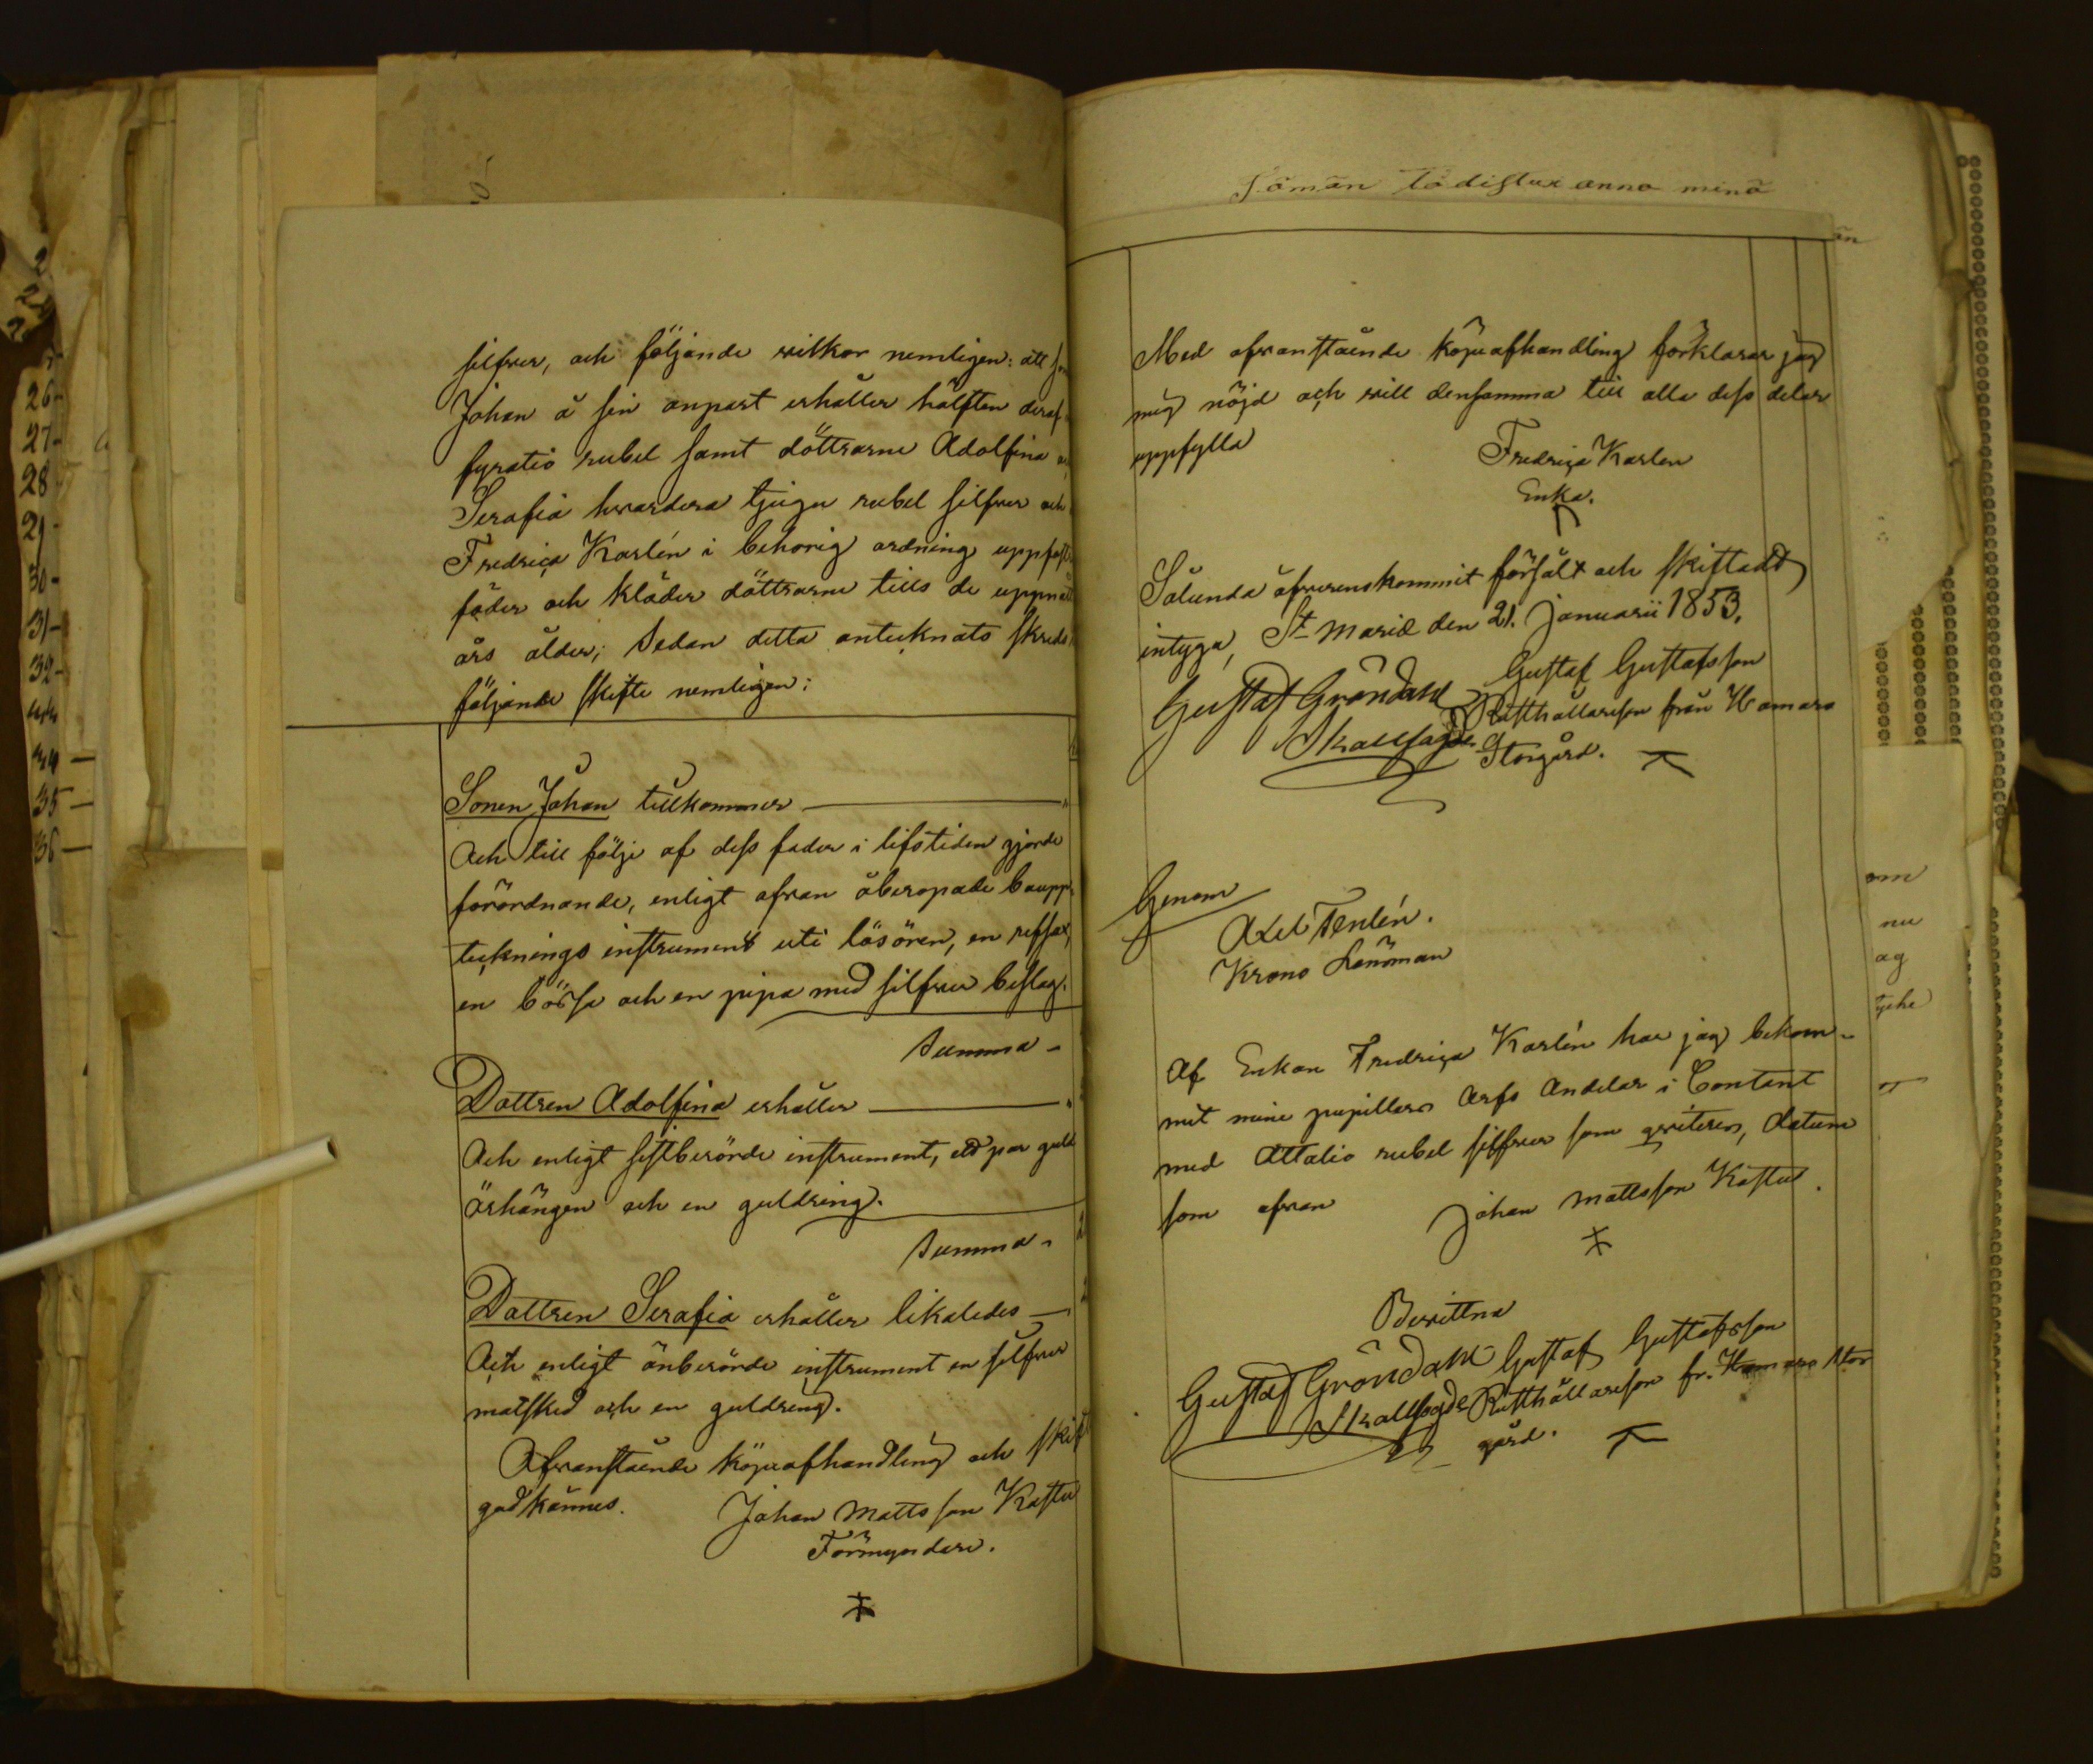 silfver, och följande wilkor nemligen: att
Johan å sin anpart erhåller hälften deraf
fyratio rubel samt döttrarne Adolfina
Serafia hvardera tjugu rubel silfver och
Fredrica Karlén i behörig ordning uppfost
föder och kläder döttrarne tills de uppnå
års ålder; Sedan detta antecknats skreds
följande skifte nemligen:
Sonen Johan tillkommer
Och till följe af dess fader i lifstiden gjorde
förordnande, enligt ofvan åberopade boupp
tecknings instrument uti lösören, en
en börsa och en pipa med silfver beslag.
Summa
Dottren Adolfina erhåller
Och enligt sistberörde instrument, ett par guld
örhängen och en guldring.
Summa
Dottren Serafia erhåller likaledes
Och enligt ånberörde instrument en silfver
matsked och en guldring.
Ofvanstående köpeafhandling och skift
godkännes. Johan Mattsson Kastu
Förmyndare.
26
27
28
30
31
32
35
36
Med ofvanstående köpeafhandling förklarar jag
mig nöjd och will densamma till alla dess delar
uppfylla
Fredrica Karlen
Enka.
Sålunda öfverenskommit försålt och skiftadt
intyga, St Mariæ den 21. Januarii 1853.
Gustaf Gröndahl Gustaf Gustafsson
Skallfogde Rusthållareson från Hamaro
Storgård.
Genom
Axel Tenlén.
Krono Länsman
Af Enkan Fredrica Karlén har jag bekom-
mit mine pupillers Arfs Andelar i Contant
med Attatio rubel silfver som qviteras, datum
som ofvan Johan Mattsson Kastu.
Bevittna
Gustaf Gröndahl Gustaf Gustafsson
Skallfogde Rusthållareson fr. Hamaro Stor
gård.
om
nu
ag